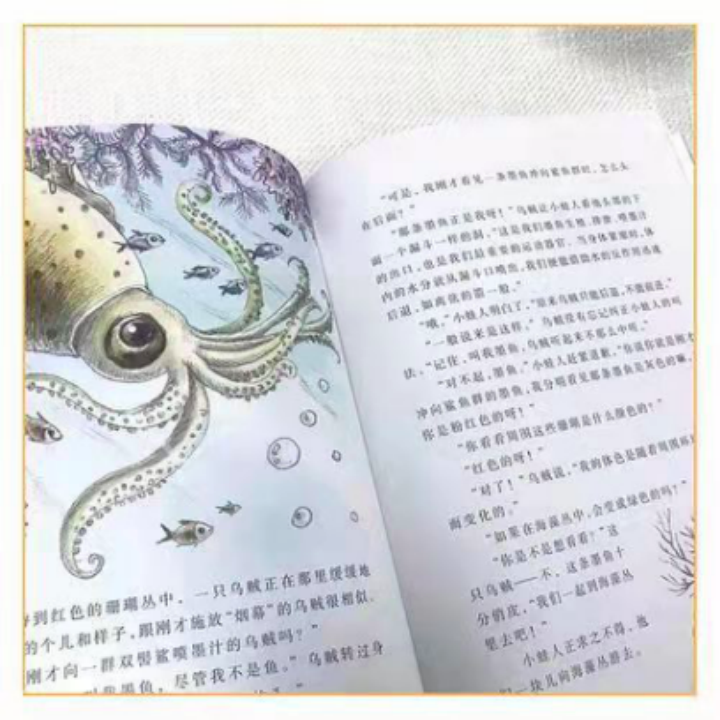 到红色的珊瑚丛中,一只乌贼正在那里缓缓地
的个儿和样子,跟刚才施放“烟幕”的乌贼很相似。
刚才向一群双髻鲨喷墨汁的乌贼吗?”
叫我墨鱼,尽管我不是鱼。”乌贼转过身
“可是,我刚才看见一条墨鱼冲向鲨鱼群时,怎么头
在后面?”
“那条墨鱼正是我呀!”乌贼让小蛙人看他头部的下
面一个漏斗一样的洞,“这是我们墨鱼生殖、排泄、喷墨汁
的出口,也是我们最重要的运动器官。当身体紧缩时,体
内的水分就从漏斗口喷出,我们便能借助水的反作用迅速
后退,如离弦的箭一般。”
“哦,”小蛙人明白了,“原来乌贼只能后退,不能前进。”
“一般说来是这样。”乌贼没有忘记纠正小蛙人的叫
法,“记住,叫我墨鱼,乌贼听起来不那么中听。”
“对不起,墨鱼。”小蛙人赶紧道歉,“你说你就是刚才
冲向鲨鱼群的墨鱼,我分明看见那条墨鱼是灰色的嘛,
你是粉红色的呀!”
“你看看周围这些珊瑚是什么颜色的?”
“红色的呀!”
“对了!”乌贼说,“我的体色是随着周围环
而变化的。”
“如果在海藻丛中,会变成绿色的吗?”
“你是不是想看看?”这
只乌贼——不,这条墨鱼十
分俏皮,“我们一起到海藻丛
里去吧!”
小蛙人正求之不得,他
们一块儿向海藻丛游去。